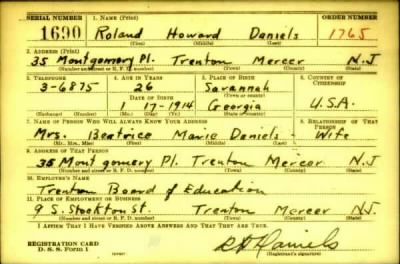 SERIAL NUMBER 1. NAME (Print) ORDER NUMBER
1690 Roland Howard Daniels 1765
(First) (Middle) (Last)
2. ADDRESS (Print)
35 Montgomery Pl. Trenton Mercer N.J
(Number and street or R. F. D. number) (Town) (County) (State)
3. TELEPHONE 4. AGE IN YEARS 5. PLACE OF BIRTH 6. COUNTRY OF CITIZENSHIP
3-6875 26 Savannah
DATE OF BIRTH (Town or county)
1 17-1914 Georgia U.S.A.
(Exchange) (Number) (Mo.) (Day) (Yr.) (State or country)
7. NAME OF PERSON WHO WILL ALWAYS KNOW YOUR ADDRESS 8. RELATIONSHIP OF THAT PERSON
Mrs. Beatrice Marie Daniels - Wife
(Mr., Mrs., Miss) (First) (Middle) (Last)
9. ADDRESS OF THAT PERSON
35 Montgomery Pl. Trenton Mercer N.J
(Number and street or R. F. D. number) (Town) (County) (State)
10. EMPLOYER'S NAME
Trenton Board of Education
11. PLACE OF EMPLOYMENT OR BUSINESS
9 S. Stockton St. Trenton Mercer N.J.
(Number and street or R. F. D. number) (Town) (County) (State)
I AFFIRM THAT I HAVE VERIFIED ABOVE ANSWERS AND THAT THEY ARE TRUE.
REGISTRATION CARD
D. S. S. Form 1 Daniels
(Registrant's signature)